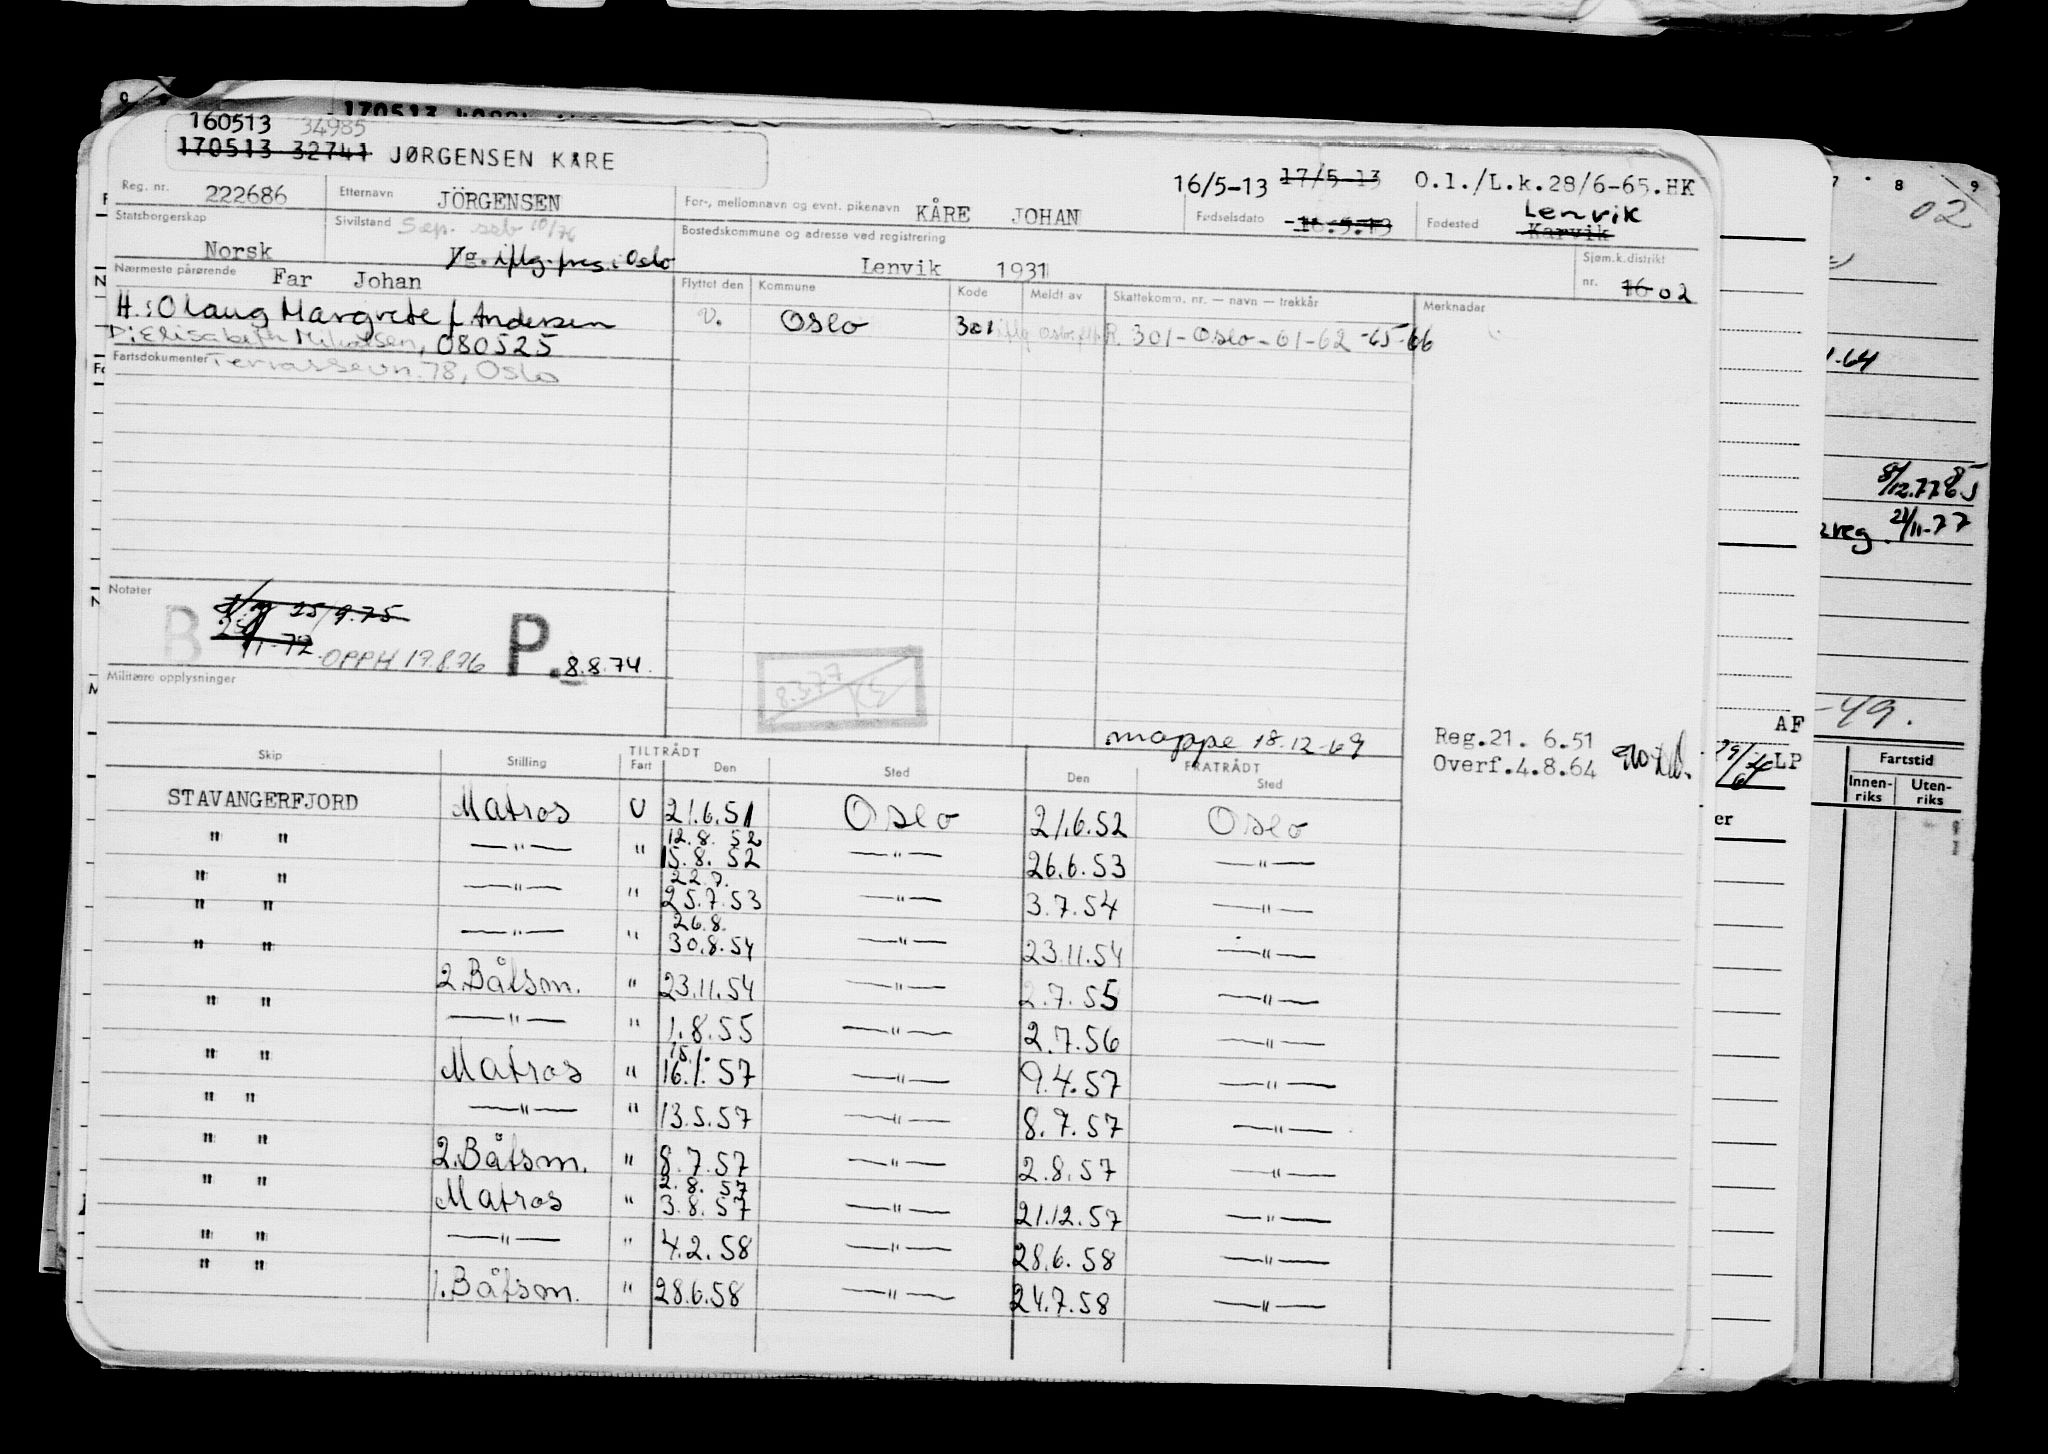 160513 34985
170513 32741 JØRGENSEN KÅRE
16/5-13 17/5-13 O.l./L.k.28/6-65.HK
Reg. nr. 222686 Etternavn JÖRGENSEN For-, mellomnavn og evnt. pikenavn KÅRE JOHAN Fødselsdato 16.5.13 Fødested Lenvik Karvik
Statsborgerskap Norsk Sivilstand Sep. 10/76 iflg. i Oslo Bostedskommune og adresse ved registrering Lenvik 1931 Sjøm.k.distrikt nr. 16 02
Nærmeste pårørende Far Johan
Flyttet den Kommune Kode Meldt av Skattekomn. nr. — navn — trekkår Merknader
H: Olaug Margrete f Andersen
V. Oslo 301 301-Oslo-61-62-65-66
D: Elisabeth Mikalsen, 080525
Fartsdokumenter Terrassevn. 78, Oslo
Notater
B 25/9.75
11-72 OPPH 17.8.76 P. 8.8.74.
8.3.77
Militære opplysninger
mappe 18.12-69
Reg.21. 6.51
Overf.4.8.64
Skip Stilling TILTRÅDT Fart Den Sted FRATRÅDT Den Sted
STAVANGERFJORD Matros U 21.6.51 Oslo 21.6.52 Oslo
" " —"— " 12.8. 52 15.8. 52 —"— 26.6.53 —"—
" " —"— " 22.7. 25.7.53 —"— 3.7.54 —"—
" " —"— " 26.8. 30.8.54 —"— 23.11.54 —"—
" " 2.Båtsm. " 23.11.54 —"— 2.7.55 —"—
" " —"— " 1.8.55 —"— 2.7.56 —"—
" " Matros " 15.1. 16.1.57 —"— 9.4.57 —"—
" " —"— " 13.5.57 —"— 8.7.57 —"—
" " 2.Båtsm. " 8.7.57 —"— 2.8.57 —"—
" " Matros " 2.8. 57 3.8.57 —"— 21.12.57 —"—
" " —"— " 4.2.58 —"— 28.6.58 —"—
" " 1.Båtsm. " 28.6.58 —"— 24.7.58 —"—
7 8 9
02
1-64
8/12.77
reg 21/11-77
-49.
AF
LP
Fartstid
Innen-riks Uten-riks
er